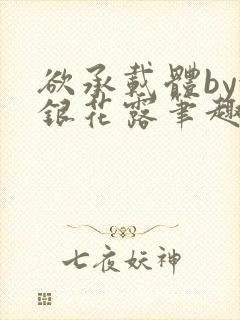 欲承載體by
銀花露筆趣
七夜妖神